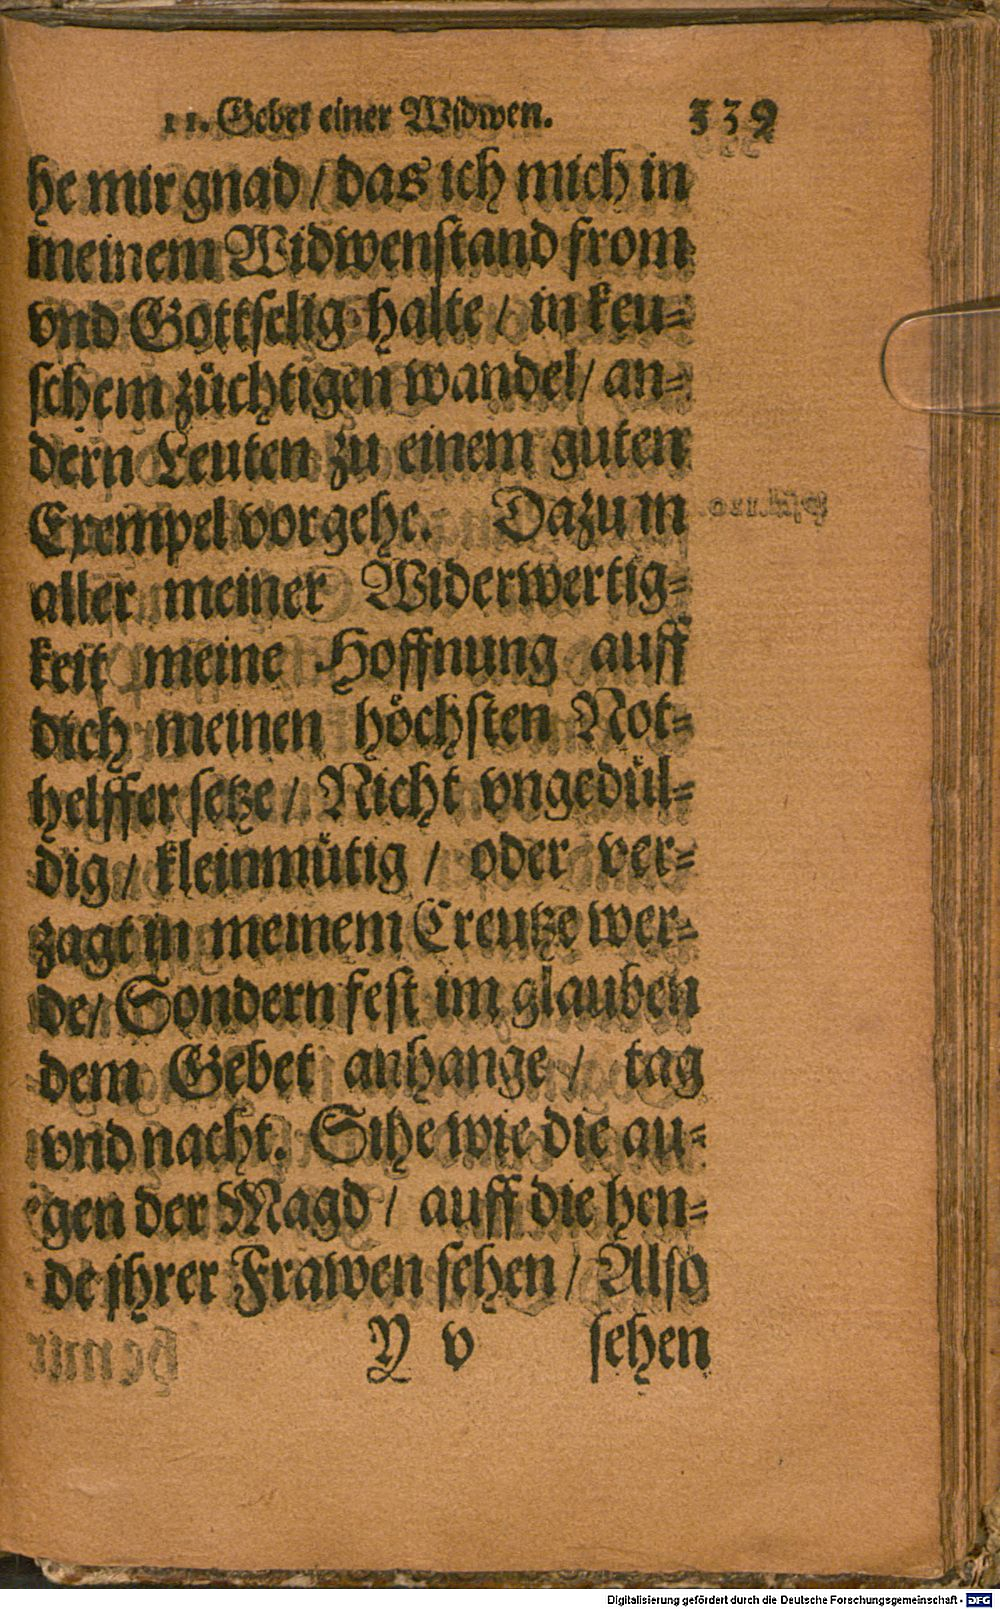 11. Gebet einer Widwen. 339
he mir gnad / das ich mich in
meinem Widwenstand from
vnd Gottselig halte / in keu-
schem züchtigen wandel / an-
dern Leuten zu einem guten
Exempel vorgehe. Dazu in
aller meiner Widerwertig-
keit meine Hoffnung auff
dich meinen höchsten Not-
helffer setze / Nicht vngedül-
dig / kleinmütig / oder ver-
zagt in meinem Creutze wer-
de / Sondern fest im glauben
dem Gebet anhange / tag
vnd nacht. Sihe wie die au-
gen der Magd / auff die hen-
de jhrer Frawen sehen / Also
Y v sehen
Digitalisierung gefördert durch die Deutsche Forschungsgemeinschaft - DFG